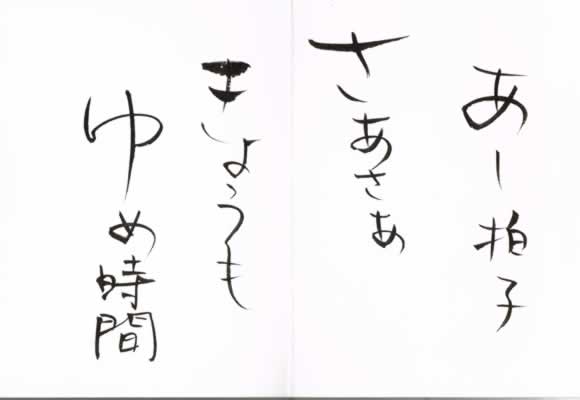 あー拍子
さあさあ
きょうも
ゆめ時間